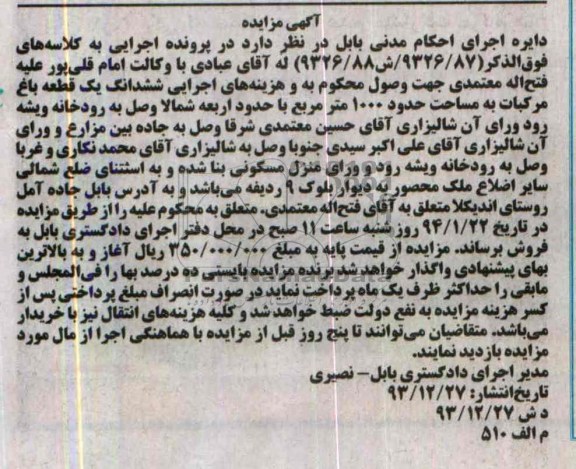 آگهی مزایده
دایره اجرای احکام مدنی بابل در نظر دارد در پرونده اجرایی به کلاسه‌های
فوق‌الذکر(۹۳۲۶/۸۷/ش۹۳۲۶/۸۸) له آقای عبادی با وکالت امام قلی‌پور علیه
فتح‌اله معتمدی جهت وصول محکوم به و هزینه‌های اجرایی ششدانگ یک قطعه باغ
مرکبات به مساحت حدود ۱۰۰۰ متر مربع با حدود اربعه شمالا وصل به رودخانه ویشه
رود ورای آن شالیزاری آقای حسین معتمدی شرقا وصل به جاده بین مزارع و ورای
آن شالیزاری آقای علی اکبر سیدی جنوبا وصل به شالیزاری آقای محمد نکاری و غربا
وصل به رودخانه ویشه رود و ورای منزل مسکونی بنا شده و به استثنای ضلع شمالی
سایر اضلاع ملک محصور به دیوار بلوک ۹ ردیفه می‌باشد و به آدرس بابل جاده آمل
روستای اندیکلا متعلق به آقای فتح‌اله معتمدی. متعلق به محکوم علیه را از طریق مزایده
در تاریخ ۹۴/۱/۲۲ روز شنبه ساعت ۱۱ صبح در محل دفتر اجرای دادگستری بابل به
فروش برساند. مزایده از قیمت پایه به مبلغ ۳۵۰/۰۰۰/۰۰۰ ریال آغاز و به بالاترین
بهای پیشنهادی واگذار خواهد شد برنده مزایده بایستی ده درصد بها را فی‌المجلس و
مابقی را حداکثر ظرف یک ماه پرداخت نماید در صورت انصراف مبلغ پرداختی پس از
کسر هزینه مزایده به نفع دولت ضبط خواهد شد و کلیه هزینه‌های انتقال نیز با خریدار
می‌باشد. متقاضیان می‌توانند تا پنج روز قبل از مزایده با هماهنگی اجرا از مال مورد
مزایده بازدید نمایند.
مدیر اجرای دادگستری بابل- نصیری
تاریخ‌انتشار: ۹۳/۱۲/۲۷
د ش ۹۳/۱۲/۲۷
م الف ۵۱۰